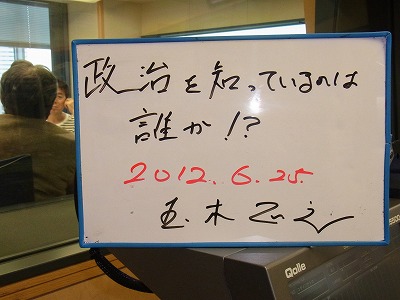 政治を知っているのは
誰か!?
2012.6.25.
五木
Qolle